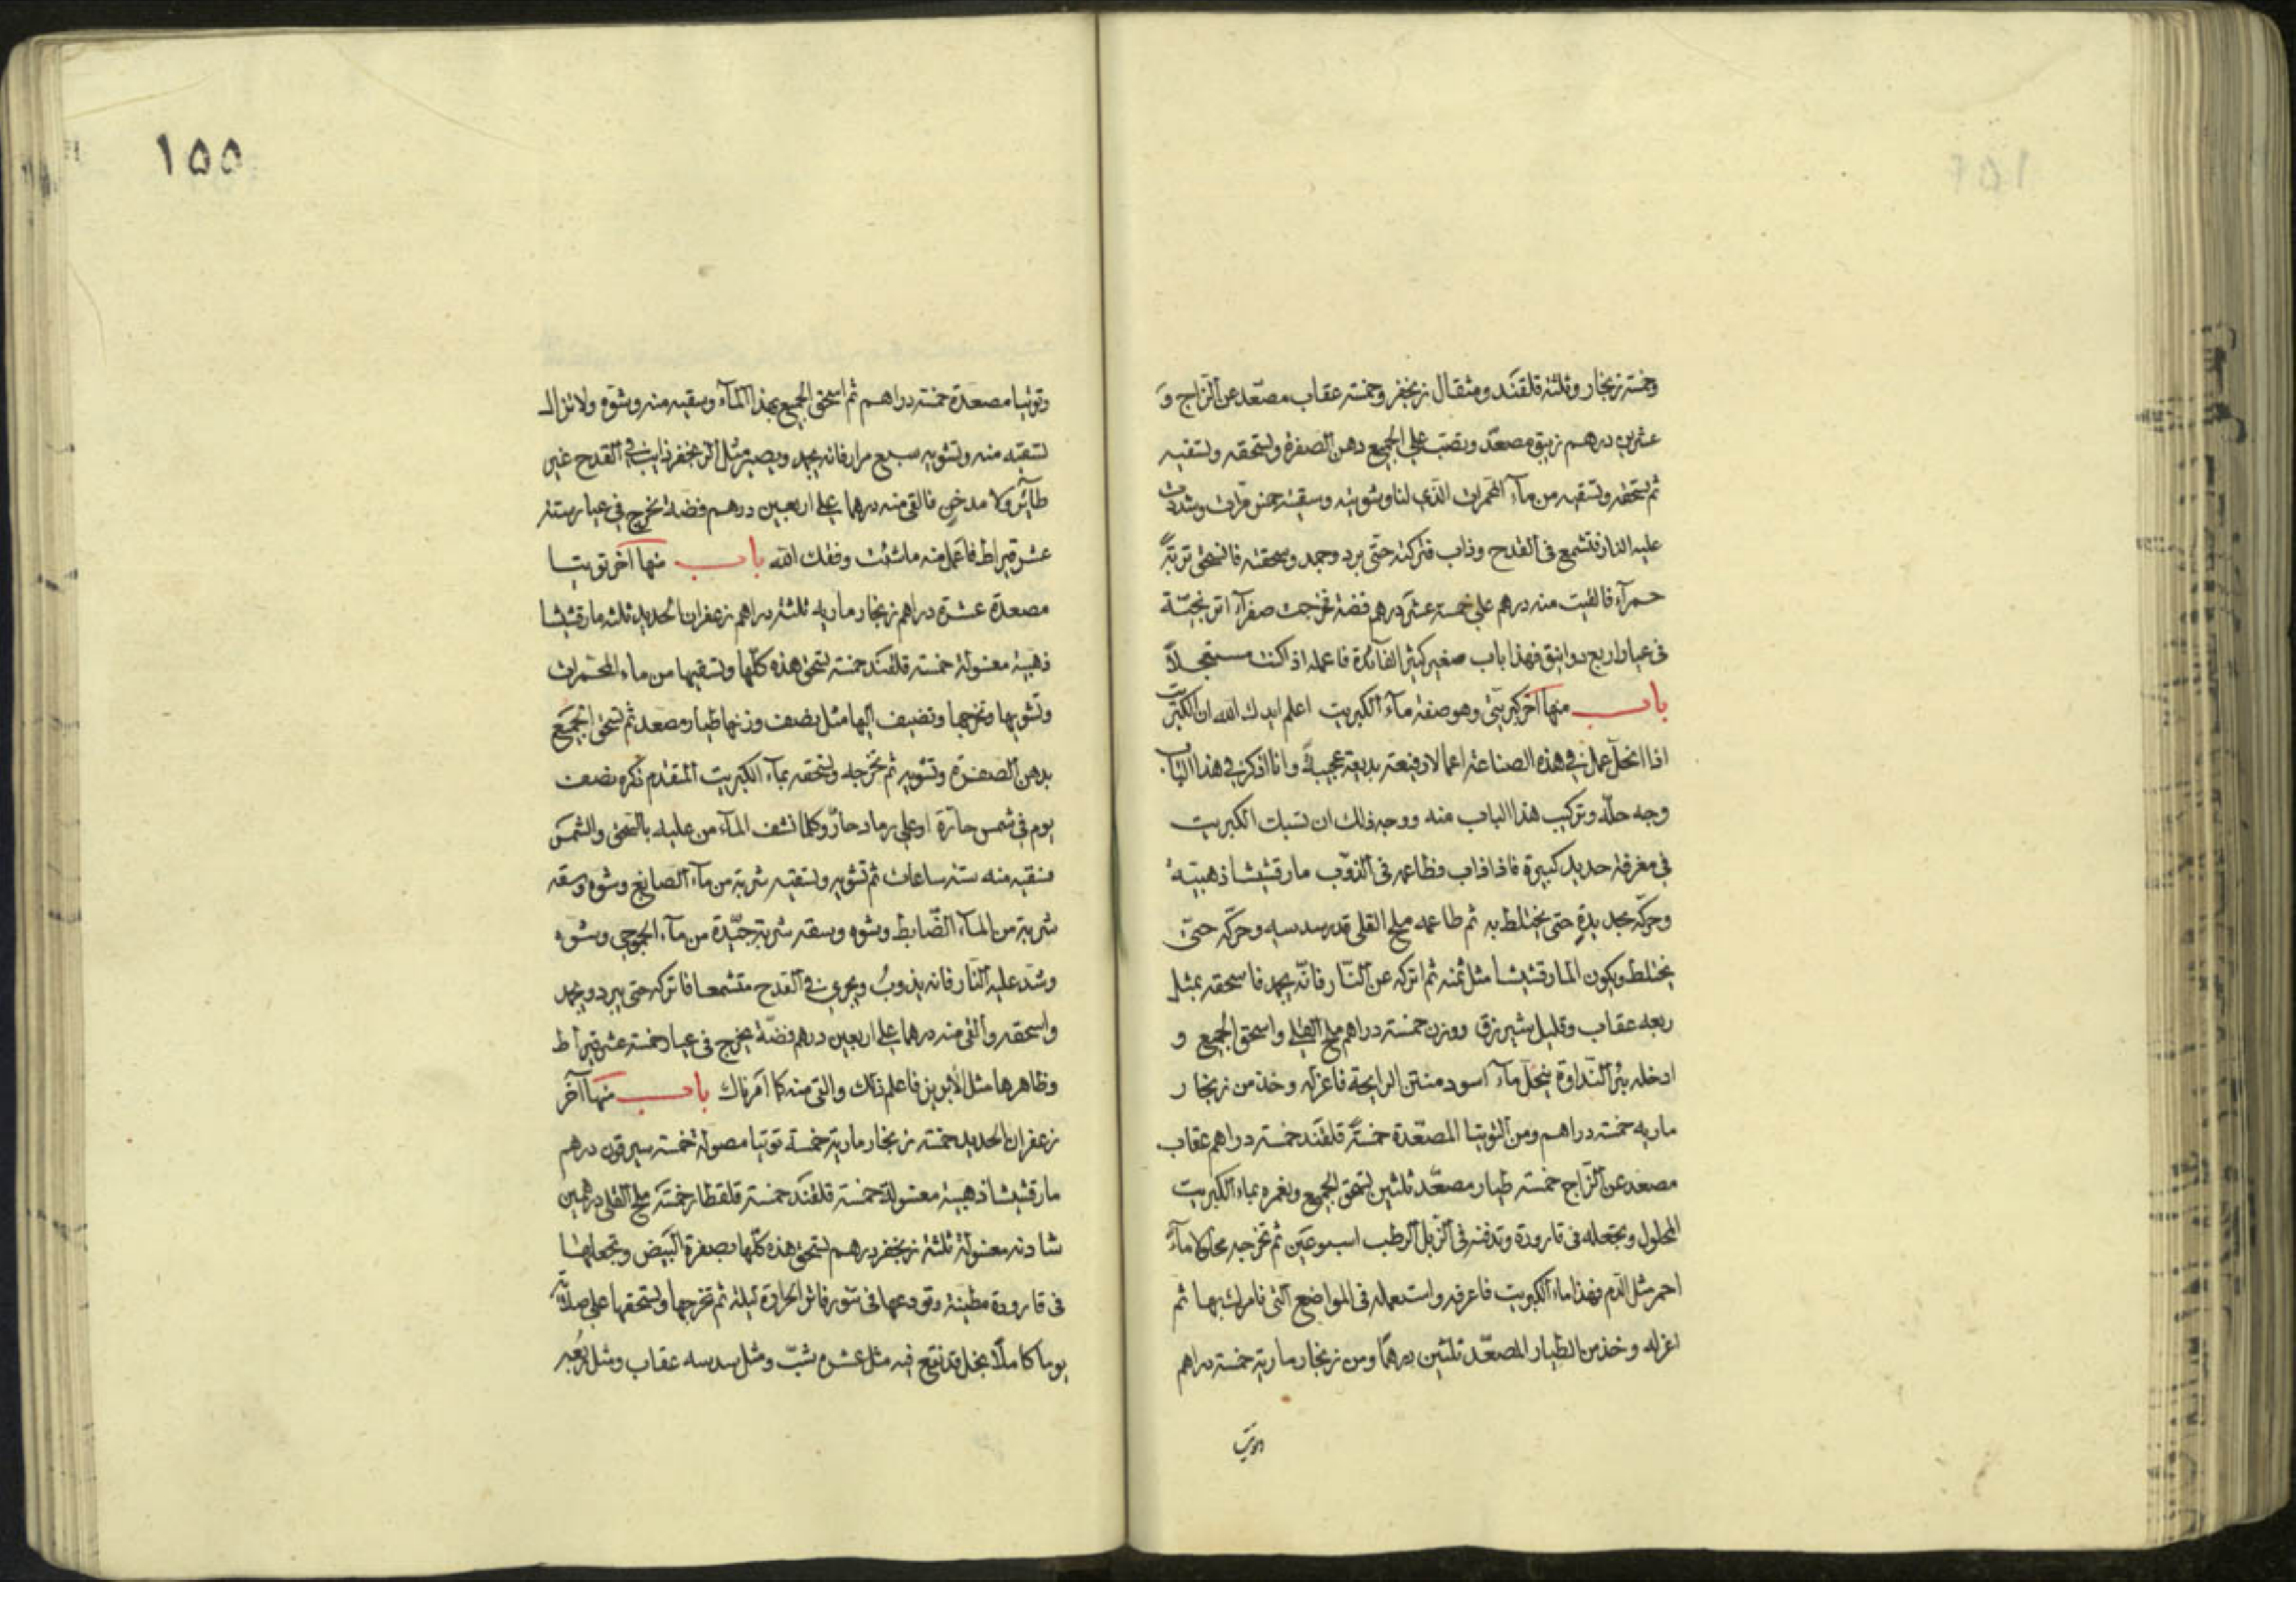 وخمسة زنجار وثلثة قلقند ومثقال زنجفر وخمسة عقاب مصعّد عن الزاج و
عشرين درهم زيبق مصعّد وتصبّ على الجميع دهن الصفرة وتسحقه وتسقيه
ثم تسحقه وتسقيه من ماء المحمرات الذي لنا وشويته وسقيته خمس مرات وشددت
عليه النار فتشمع في القدح وذاب فتركته حتى برد وجمد وسحقته فانسحق تربة
حمرآء فالقيت منه درهم على خمسة عشر درهم فضة فخرجت صفرآء اترنجيّة
في عيار اربع دوانيق فهذا باب صغير كثير الفآئدة فاعمله اذا كنت مستعجلاً
باب منها آخر كبريتي وهو صفة مآء الكبريت اعلم ايدك الله ان الكبريت
اذا انحلّ عمل في هذه الصناعة اعمالا رفيعة بديعة عجيبة وانا اذكر في هذا الباب
وجه حلّه وتركيب هذا الباب منه ووجه ذلك ان تسبك الكبريت
في مغرفة حديد كبيرة فاذا ذاب فطاعمه في الذوب مارقشيشا ذهبيّة
وحرّكه بحديدة حتى يختلط به ثم طاعمه ملح القلي قدر سدسه وحرّكه حتى
يختلط ويكون المارقشيشا مثل ثمنه ثم اتركه عن النار فانّه يجمد فاسحقه بمثل
ربعه عقاب وقليل شيرزق ووزن خمسة دراهم ملح القلي واسحق الجميع و
ادخله بئر النداوة ينحلّ مآء اسود منتن الرايحة فاعزله وخذ من زنجار
ماريه خمسة دراهم ومن التوتيا المصعّدة خمسة قلقند خمسة دراهم عقاب
مصعد عن الزاج خمسة طيار مصعّد ثلثين تسحق الجميع وتغمره بماء الكبريت
المحلول وتجعله في قارورة وتدفنه في الزبل الرطب اسبوعين ثم تخرجه محلولا مآء
احمر مثل الدم فهذا ماء الكبريت فاعرفه واستعمله في المواضع التي نامرك بها ثم
اعزله وخذ من الطيار المصعّد ثلثين درهمًا ومن زنجار مارية خمسة دراهم
١٥٥
وتوتيا مصعدة خمسة دراهم ثم اسحق الجميع بهذا المآء وسقيه منه وشوّه ولا تزال
تسقيه منه وتشويه سبع مرار فانه يجمد ويصير مثل الزنجفر ذايب في القدح غير
طآئر ولا مدخن فالق منه درهما على اربعين درهم فضة تخرج في عيار ستة
عشر قيراط فاعمل منه ما شئت وفقك الله باب منها آخر توتيا
مصعدة عشرة دراهم زنجار ماريه ثلثة دراهم زعفران الحديد ثلثه مارقشيشا
ذهبية مغسولة خمسة قلقند خمسة تسحق هذه كلّها وتسقيها من ماء المحمرات
وتشويها وتخرجها وتضيف اليها مثل نصف وزنها طيار مصعد ثم تسحق الجميع
بدهن الصفرة وتشويه ثم تخرجه وتسحقه بمآء الكبريت المتقدم ذكره نصف
يوم في شمس حارّة او على رماد حارّ وكلما نشف المآء من عليه بالسحق والشمس
فسقيه منه ستة ساعات ثم تشويه وتسقيه شربة من مآء الصابغ وشوه وسقه
شربة من المآء الضّابط وشوه وسقه شربة جيّدة من مآء وشوه
وشد عليه النار فانه يذوبُ ويجري في القدح متشمعا فاتركه حتى يبرد ويجمد
واسحقه والق منه درهما على اربعين درهم فضّة يخرج في عيار خمسة عشر قيراط
وظاهرها مثل الابريز فاعلم ذلك والق منه كما امرناك باب منها آخر
زعفران الحديد خمسة زنجار مارية خمسة توتيا مصولة خمسة سيرقون درهم
مارقشيشا ذهبية مغسولة خمسة قلقند خمسة قلقطار خمسة ملح القلي درهمين
شادنه مغسولة ثلثة زنجفر درهم تسحق هذه كلّها بصفرة البيض وتجعلها
في قارورة مطينة وتودعها في تنور فاتر الحرارة ليلة ثم تخرجها وتسحقها على صلاية
يوما كاملاً بخل قد نقع فيه مثل عشره شبّ ومثل سدسه عقاب ومثل ربعه